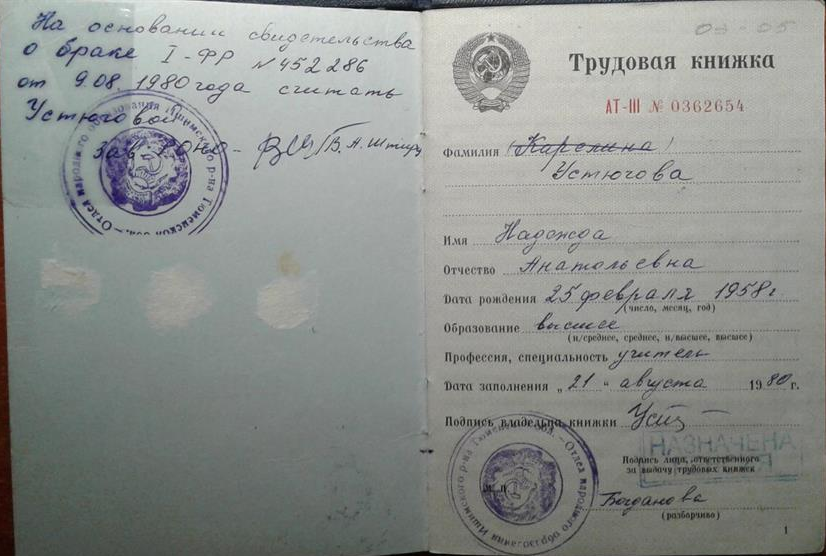 На основании свидетельства
о браке I-ФР № 452286
от 9.08.1980 года считать
Устюговой
Зав. РОНО - В.А. Штиру
Отдел народного образования Ишимского р-на Тюменской обл.
03-05
Трудовая книжка
АТ-III № 0362654
Фамилия (Карелина)
Устюгова
Имя Надежда
Отчество Анатольевна
Дата рождения 25 февраля 1958г
(число, месяц, год)
Образование высшее
(н/среднее, среднее, н/высшее, высшее)
Профессия, специальность учитель
Дата заполнения „21" августа 1980 г.
Подпись владельца книжки
НАЗНАЧЕНА
Подпись лица, ответственного
за выдачу трудовых книжек
М. П.
Богданова
(разборчиво)
Отдел народного образования Ишимского р-на Тюменской обл.
1